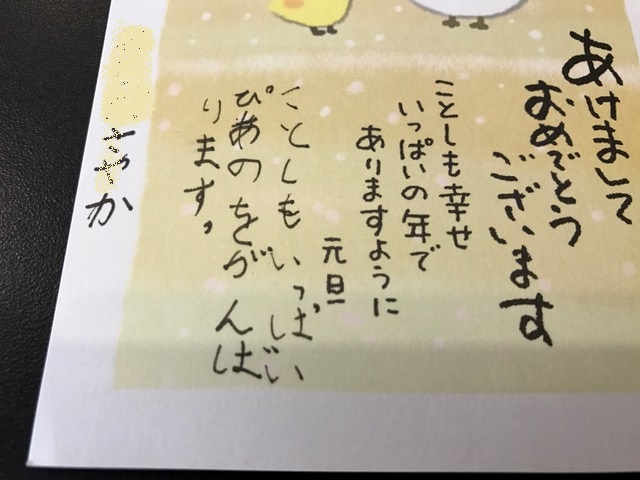 あけまして
おめでとう
ございます
ことしも幸せ
いっぱいの年で
ありますように
元旦
ことしもいっぱいじい
ぴあのをがんば
ります。
さやか